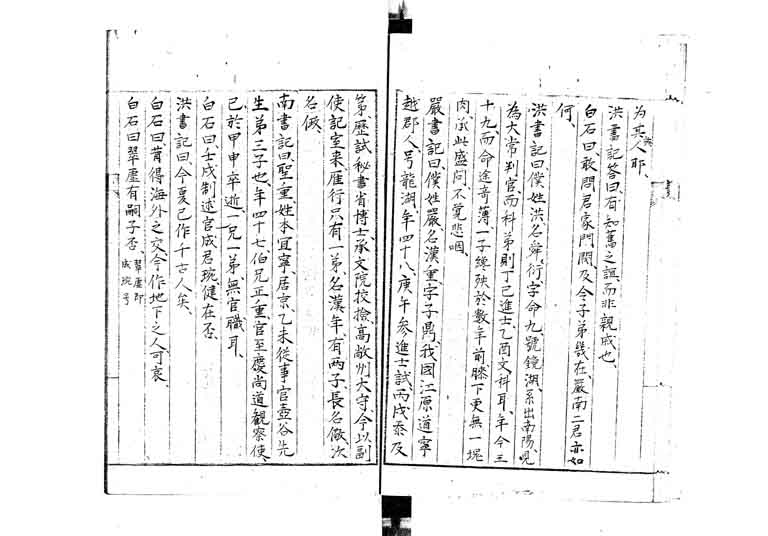 为其人耶、
洪書記答曰、有知舊之誼、而非親戚也、
白石曰、敢問君家門閥、及令子弟幾在、嚴南二君亦如
何、
洪書記曰、僕姓洪名舜衍字命九號鏡湖、系出南陽、現
為大常判官、而科第則丁巳進士、乙酉文科耳、年今三
十九、而命途奇薄、一子纔殀於數年前、膝下更無一塊
肉、承此盛問、不覺悲咽、
嚴書記曰、僕姓嚴名漢重字子鼎、我国江原道寧
越郡人、号龍湖、年四十八、庚午参進士試、丙戌忝及
第、歷試秘書省博士承文院校檢高敞州大守、今以副
使記室来、雁行只有一弟、名漢年、有两子、長名儆次
名儆、
南書記曰、聖重、姓本宜寧、居京、乙未從事官壺谷先
生第三子也、年四十七、伯兄正重、官至慶尚道観察使、
已於甲申卒逝、一兄一弟、無官職耳、
白石曰、壬戌制述官成君琬、健在否、
洪書記曰、今夏已作千古人矣、
白石曰、昔得海外之交、今作地下之人、可哀、
白石曰、翠虛有嗣子否、翠虛即
成琬号